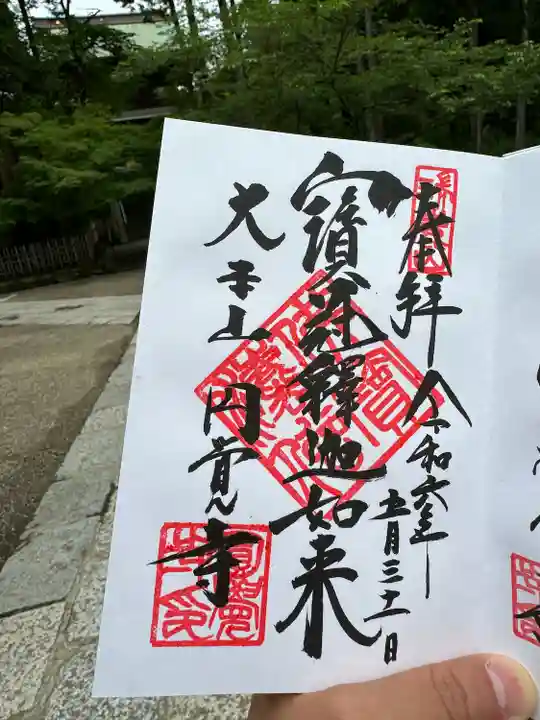 奉拝
令和六年
五月三十一日
寳冠釋迦如来
大本山
円覚寺